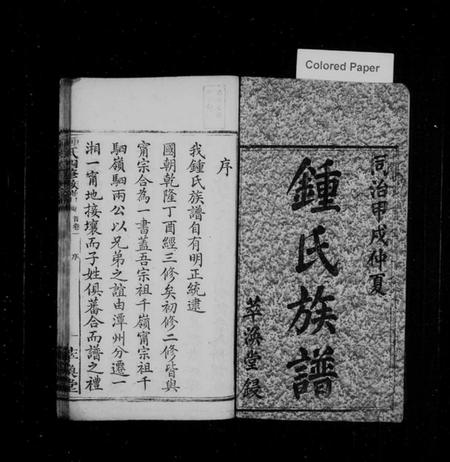 Colored Paper
同治甲戌仲夏
鍾氏族譜
萃渙堂鋟
序
我鍾氏族譜自有明正統逮
國朝乾隆丁酉經三修矣初修二修皆與
甯宗合為一書蓋吾宗祖千嶺甯宗祖千
駟嶺駟兩公以兄弟之誼由潭州分遷一
湘一甯地接壤而子姓俱蕃合而譜之種
氏四修族譜
首卷一
序
一
萃渙堂